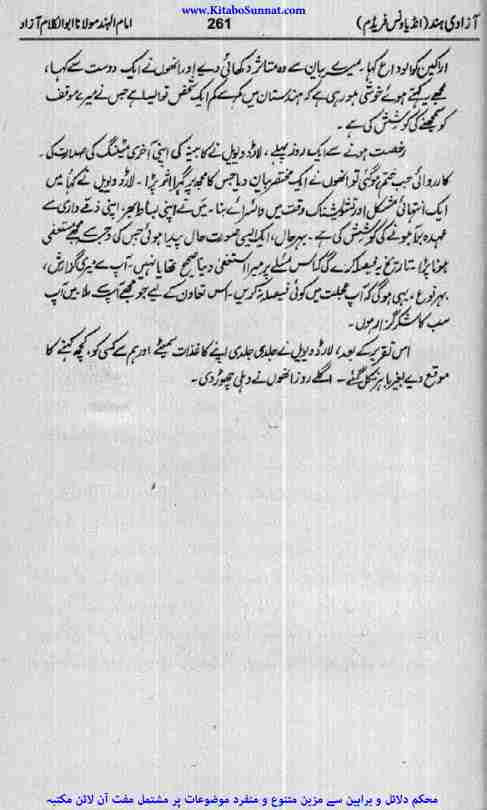 www.KitaboSunnat.com
آزادی ہند (انڈیا ونس فریڈم) 261 امام الہند مولانا ابوالکلام آزاد
اراکین کو الوداع کہا۔ میرے بیان سے وہ متاثر دکھائی دیے اور انھوں نے ایک دوست سے کہا،
مجھے یہ کہتے ہوئے خوشی ہو رہی ہے کہ ہندستان میں کم سے کم ایک شخص تو ایسا ہے جس نے میرے موقف
کو سمجھنے کی کوشش کی ہے۔
رخصت ہونے سے ایک روز پہلے، لارڈ ویول نے کابینہ کی اپنی آخری میٹنگ کی صدارت کی۔
کارروائی جب ختم ہو گئی تو انھوں نے ایک مختصر بیان دیا جس کا مجھ پر گہرا اثر پڑا۔ لارڈ ویول نے کہا میں
ایک انتہائی مشکل اور تشویشناک وقت میں وائسرائے بنا۔ میں نے اپنی بساط بھر اپنی ذمے داری سے
عہدہ برآ ہونے کی کوشش کی ہے۔ بہر حال، ایک ایسی صورت حال پیدا ہوئی جس کی وجہ سے مجھے مستعفی
ہونا پڑا۔ تاریخ یہ فیصلہ کرے گی کہ اس مسئلے پر میرا استعفیٰ دینا صحیح تھا یا نہیں۔ آپ سے میری گذارش،
بہر نوع، یہی ہوگی کہ آپ عجلت میں کوئی فیصلہ نہ کریں۔ اس تعاون کے لیے جو مجھے آپ سے ملا میں آپ
سب کا شکر گزار ہوں۔
اس تقریر کے بعد، لارڈ ویول نے جلدی جلدی اپنے کاغذات سمیٹے اور ہم سے کسی کو، کچھ کہنے کا
موقع دیے بغیر باہر نکل گئے۔ اگلے روز انھوں نے دہلی چھوڑ دی۔
محکم دلائل و براہین سے مزین متنوع و منفرد موضوعات پر مشتمل مفت آن لائن مکتبہ